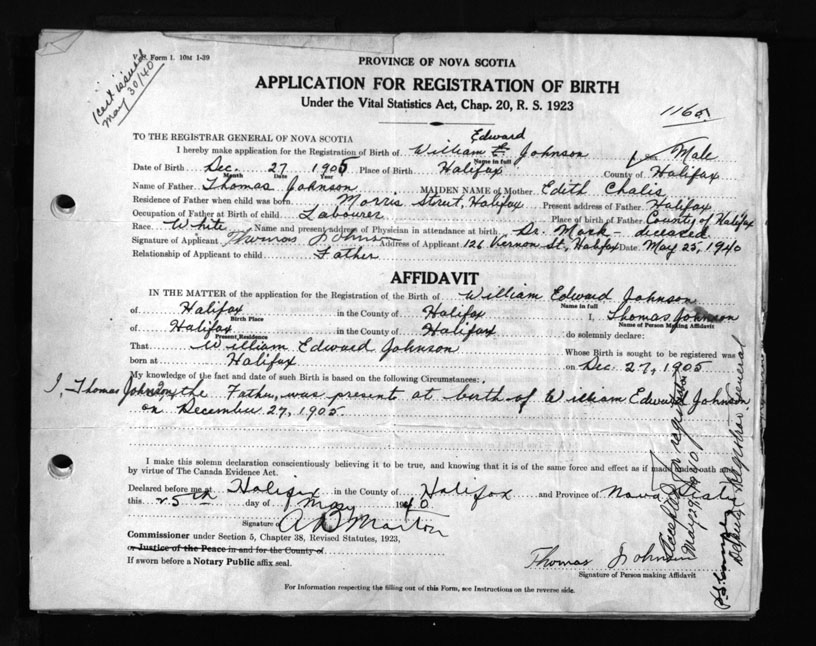 V.S. Form 1. 10M 1-39
Cert issued
May 30/40
PROVINCE OF NOVA SCOTIA
APPLICATION FOR REGISTRATION OF BIRTH
Under the Vital Statistics Act, Chap. 20, R. S. 1923
TO THE REGISTRAR GENERAL OF NOVA SCOTIA
Edward
I hereby make application for the Registration of Birth of William E. Johnson Male
Name in full
Date of Birth Dec. 27 1905 Place of Birth Halifax County of Halifax
Month Date Year
Name of Father Thomas Johnson MAIDEN NAME of Mother Edith Chalis
Residence of Father when child was born Morris Street, Halifax Present address of Father Halifax
Occupation of Father at Birth of child Labourer Place of birth of Father County of Halifax
Race White Name and present address of Physician in attendance at birth Dr. Mack - diceased
Signature of Applicant Thomas Johnson Address of Applicant 126 Vernon St, Halifax Date May 25, 1940
Relationship of Applicant to child Father
AFFIDAVIT
IN THE MATTER of the application for the Registration of the Birth of William Edward Johnson
Name in full
of Halifax in the County of Halifax I, Thomas Johnson
Birth Place Name of Person Making Affidavit
of Halifax in the County of Halifax do solemnly declare:
Present Residence
That William Edward Johnson Whose Birth is sought to be registered was
born at Halifax on Dec 27, 1905
My knowledge of the fact and date of such Birth is based on the following Circumstances:
I, Thomas Johnson, the Father, was present at birth of William Edward Johnson
on December 27, 1905
I make this solemn declaration conscientiously believing it to be true, and knowing that it is of the same force and effect as if made under oath and
by virtue of The Canada Evidence Act.
Declared before me at Halifax in the County of Halifax and Province of Nova Scotia
this 25th day of May 1940
Signature of
Commissioner under Section 5, Chapter 38, Revised Statutes, 1923,
or Justice of the Peace in and for the County of
If sworn before a Notary Public affix seal.
Thomas Johnson
Signature of Person making Affidavit
For Information respecting the filling out of this Form, see Instructions on the reverse side.
Accepted for registration
May 29, 1940
Deputy Registrar General